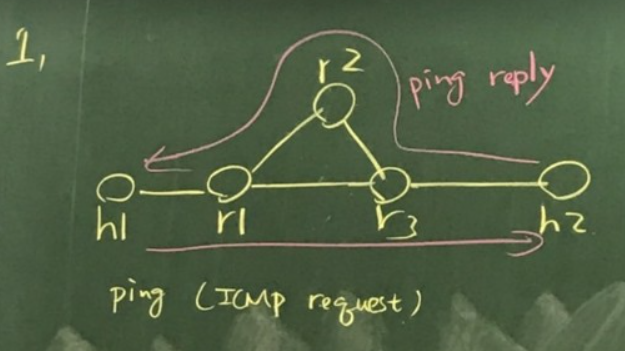 1,
r2
ping reply
h1 r1 r3 h2
ping (ICMP request)